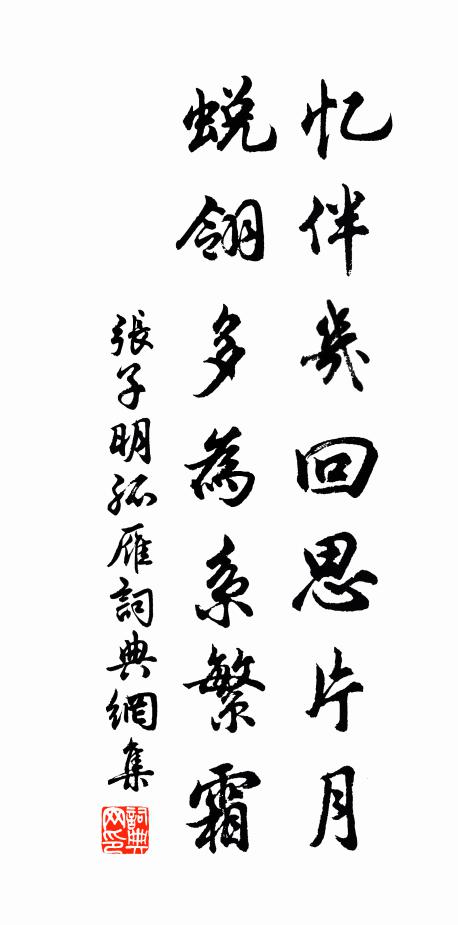 忆伴几回思片月
蜕翎多為系繁霜
張子明孤雁詞典網集
詞典网印